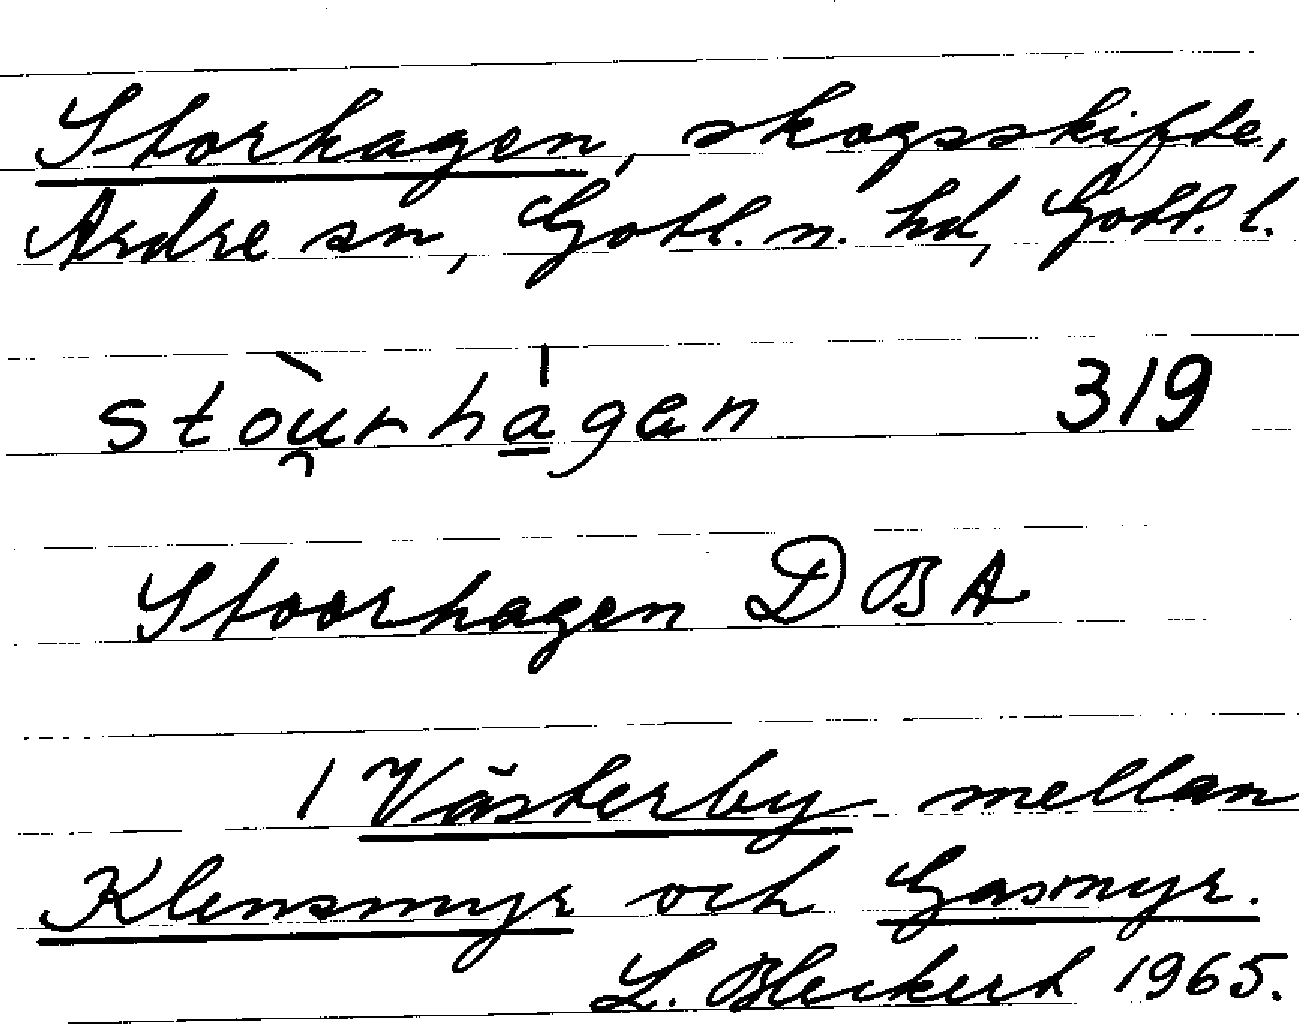 Storhagen, skogsskifte,
Ardre sn, Gotl. n. hd, Gotl. l.
stòu̯rha̍gen 319
Stoorhagen DBA
I Västerby mellan
Klensmyr och Gasmyr.
L. Bleckert 1965.